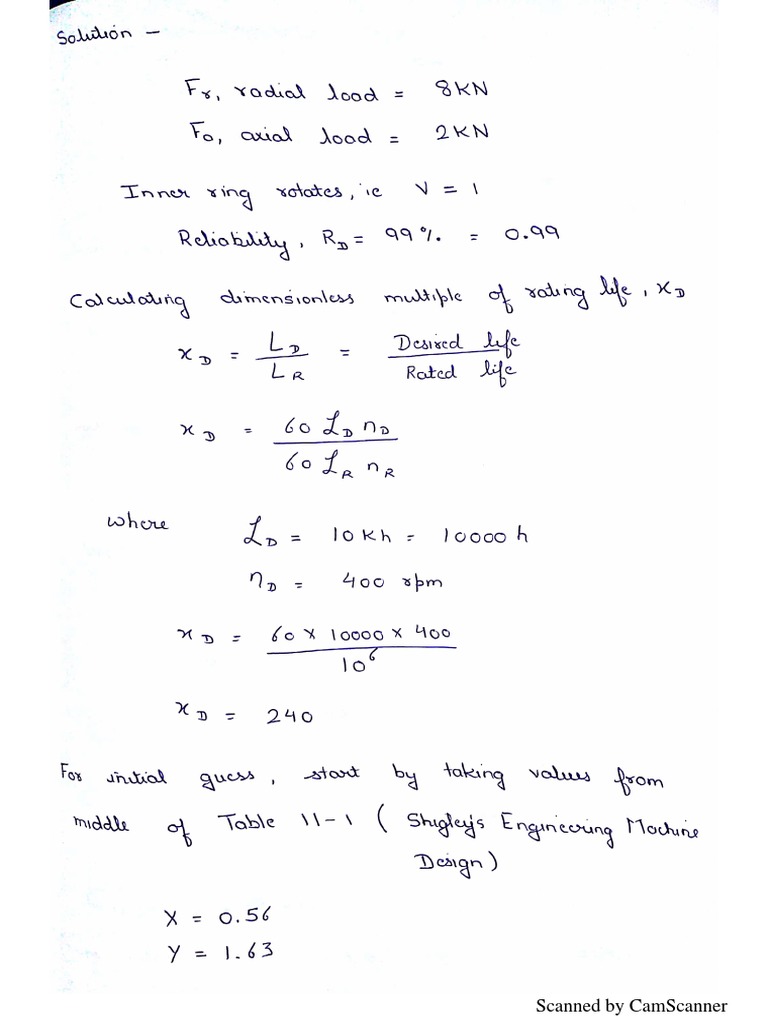 Solution -
Fr, radial load = 8KN
Fo, axial load = 2KN
Inner ring rotates, ie V = 1
Reliability, RD = 99%. = 0.99
Calculating dimensionless multiple of rating life, xD
xD = LD / LR = Desired life / Rated life
xD = 60 LD nD / 60 LR nR
where LD = 10Kh = 10000 h
nD = 400 rpm
xD = 60 × 10000 × 400 / 10^6
xD = 240
For initial guess, start by taking values from
middle of Table 11-1 ( Shigley's Engineering Machine
Design)
X = 0.56
Y = 1.63
Scanned by CamScanner